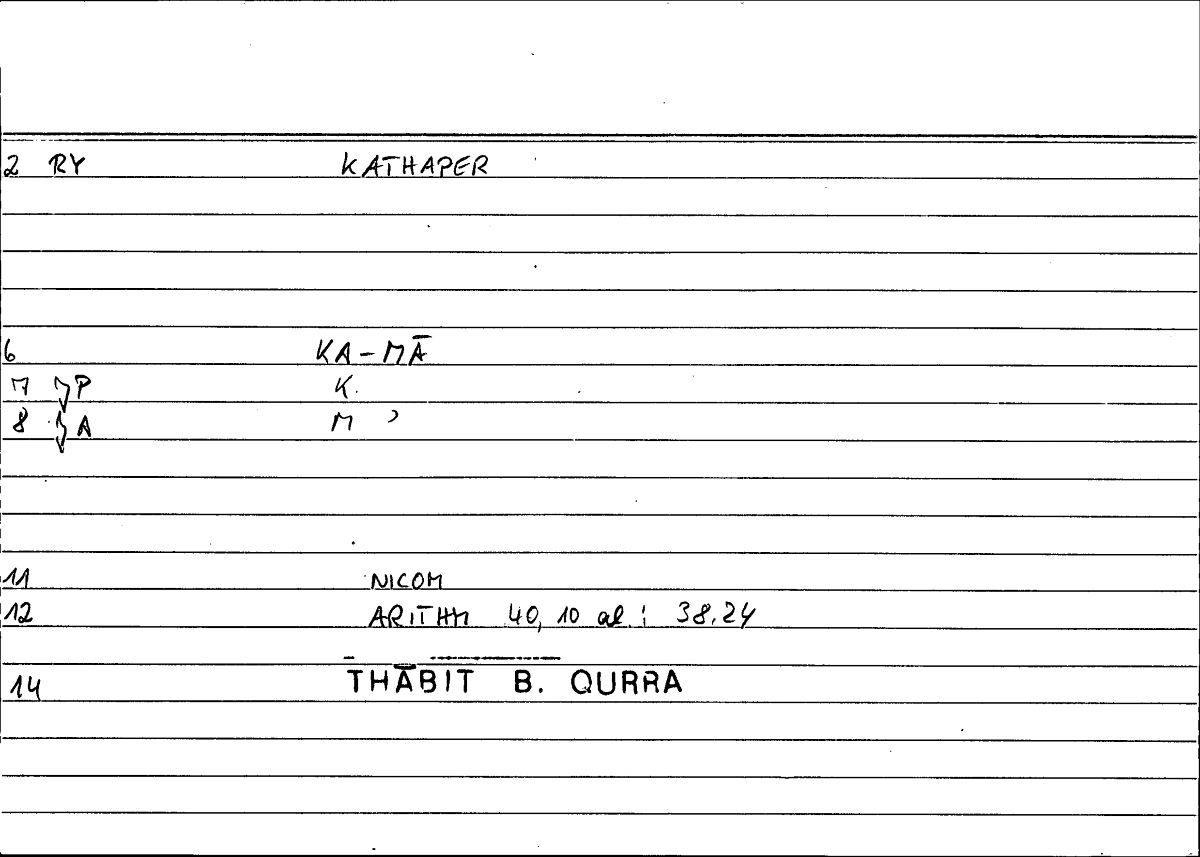 2 RY KATHAPER
6 KA-MĀ
7 P K.
8 A M ʾ
11 NICOM
12 ARITHM 40,10 al.: 38.24
14 THĀBIT B. QURRA